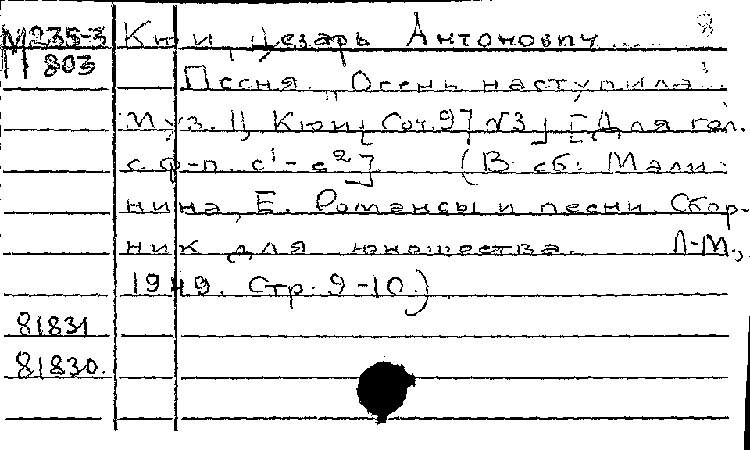 М235-3 Кюи, Цезарь Антонович
П 803
Песня „Осень наступила"
Муз. Ц. Кюи [Соч. 97 №3] [Для гол.
с ф-п. с¹-е²] (В сб: Мали-
нина, Е. Романсы и песни. Сбор-
ник для юношества. Л-М.,
1949. Стр. 9-10.)
81831
81830.